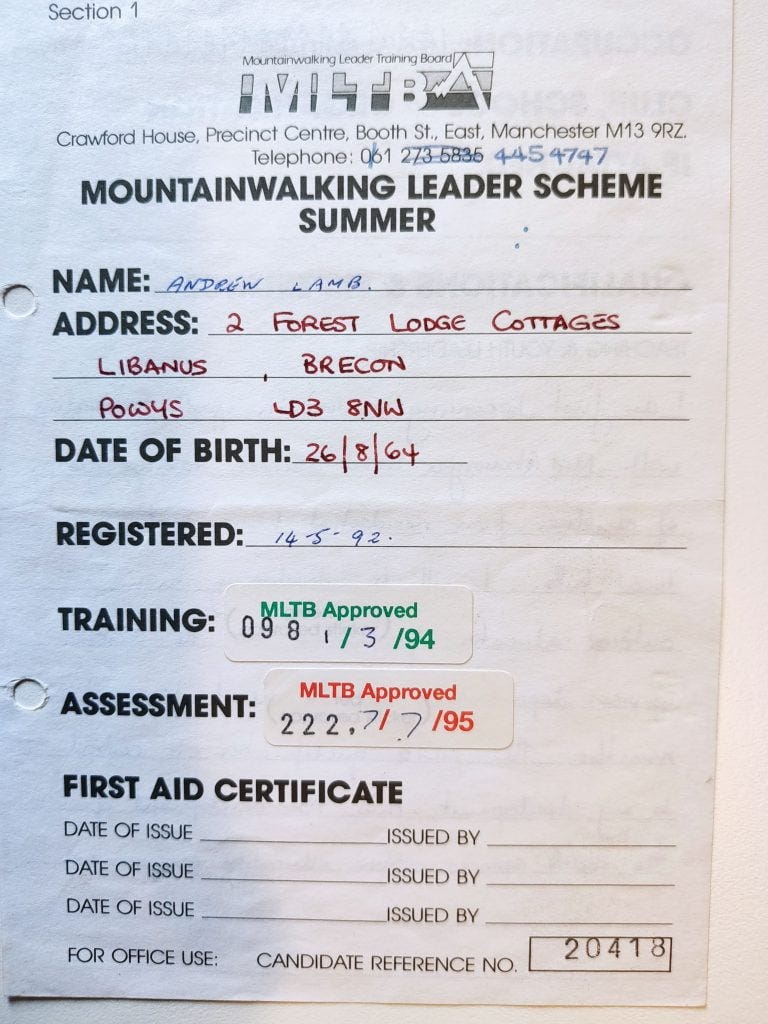 Section 1
Mountainwalking Leader Training Board
MLTB
Crawford House, Precinct Centre, Booth St., East, Manchester M13 9RZ.
Telephone: 061 273 5835 445 4747
MOUNTAINWALKING LEADER SCHEME
SUMMER
NAME: ANDREW LAMB.
ADDRESS: 2 FOREST LODGE COTTAGES
LIBANUS, BRECON
POWYS LD3 8NW
DATE OF BIRTH: 26/8/64
REGISTERED: 14-5-92.
TRAINING: MLTB Approved
098 1/3/94
ASSESSMENT: MLTB Approved
222. 7/7/95
FIRST AID CERTIFICATE
DATE OF ISSUE ISSUED BY
DATE OF ISSUE ISSUED BY
DATE OF ISSUE ISSUED BY
FOR OFFICE USE: CANDIDATE REFERENCE NO. 20418